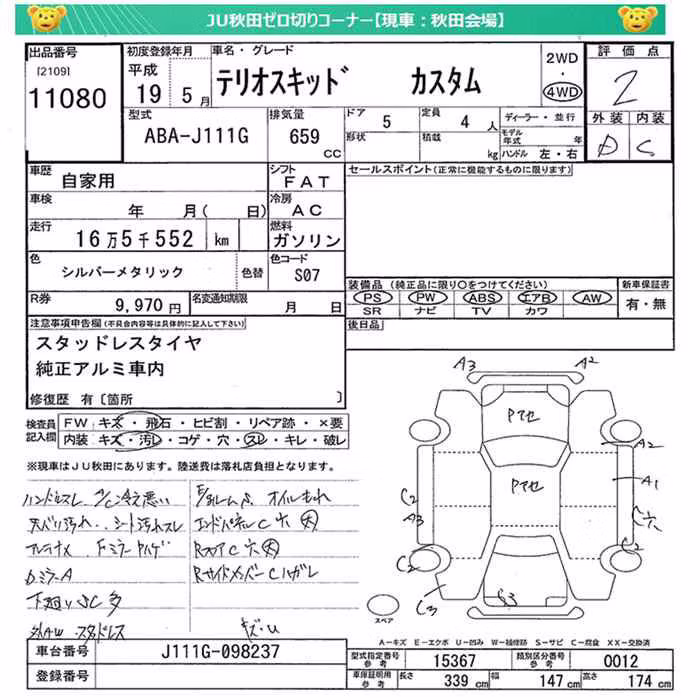 JU秋田ゼロ切りコーナー【現車：秋田会場】
出品番号
[2109]
11080
初度登録年月
平成
19 5月
車名・グレード
テリオスキッド カスタム
2WD
・
4WD
評価点
2
外装 内装
D C
型式
ABA-J111G
排気量
659
CC
ドア
5
定員
4人
形状
積載
kg
ディーラー・並行
モデル年式 年
ハンドル 左・右
車歴
自家用
シフト
FAT
車検
年 月( 日)
冷房
AC
走行
16万5千552 km
燃料
ガソリン
色
シルバーメタリック
色替
色コード
S07
R券
9,970円
名変通知期限
月 日
セールスポイント(正常に機能するものに限ります)
装備品(純正品に限り○をつけてください)
PS PW ABS エアB AW
SR ナビ TV カワ
新車保証書
有・無
後日品
注意事項申告欄(不具合内容等は具体的に記入して下さい)
スタッドレスタイヤ
純正アルミ車内
修復歴 有〔箇所 〕
検査員記入欄
FW キズ・飛石・ヒビ割・リペア跡・×要
内装 キズ・汚レ・コゲ・穴・スレ・キレ・破レ
※現車はJU秋田にあります。陸送費は落札店負担となります。
ハンドルスレ A/C冷え悪い
天バリ汚れ、シート汚れスレ
DミラーA
下廻りSC多
オイルもれ
エンドパネルC穴大
RフロアC穴大
RサイドメンバーCハガレ
スタッドレス
キズ・U
A3 A2
Pアセ
A2
Pアセ
A1
C2
A3
C穴
C2 C2
C3
C3
スペア
A－キズ E－エクボ U－凹み W－補修跡 S－サビ C－腐食 XX－交換済
車台番号
J111G-098237
登録番号
型式指定番号
参考
15367
類別区分番号
参考
0012
車庫証明用
参考
長さ 339 cm 幅 147 cm 高さ 174 cm